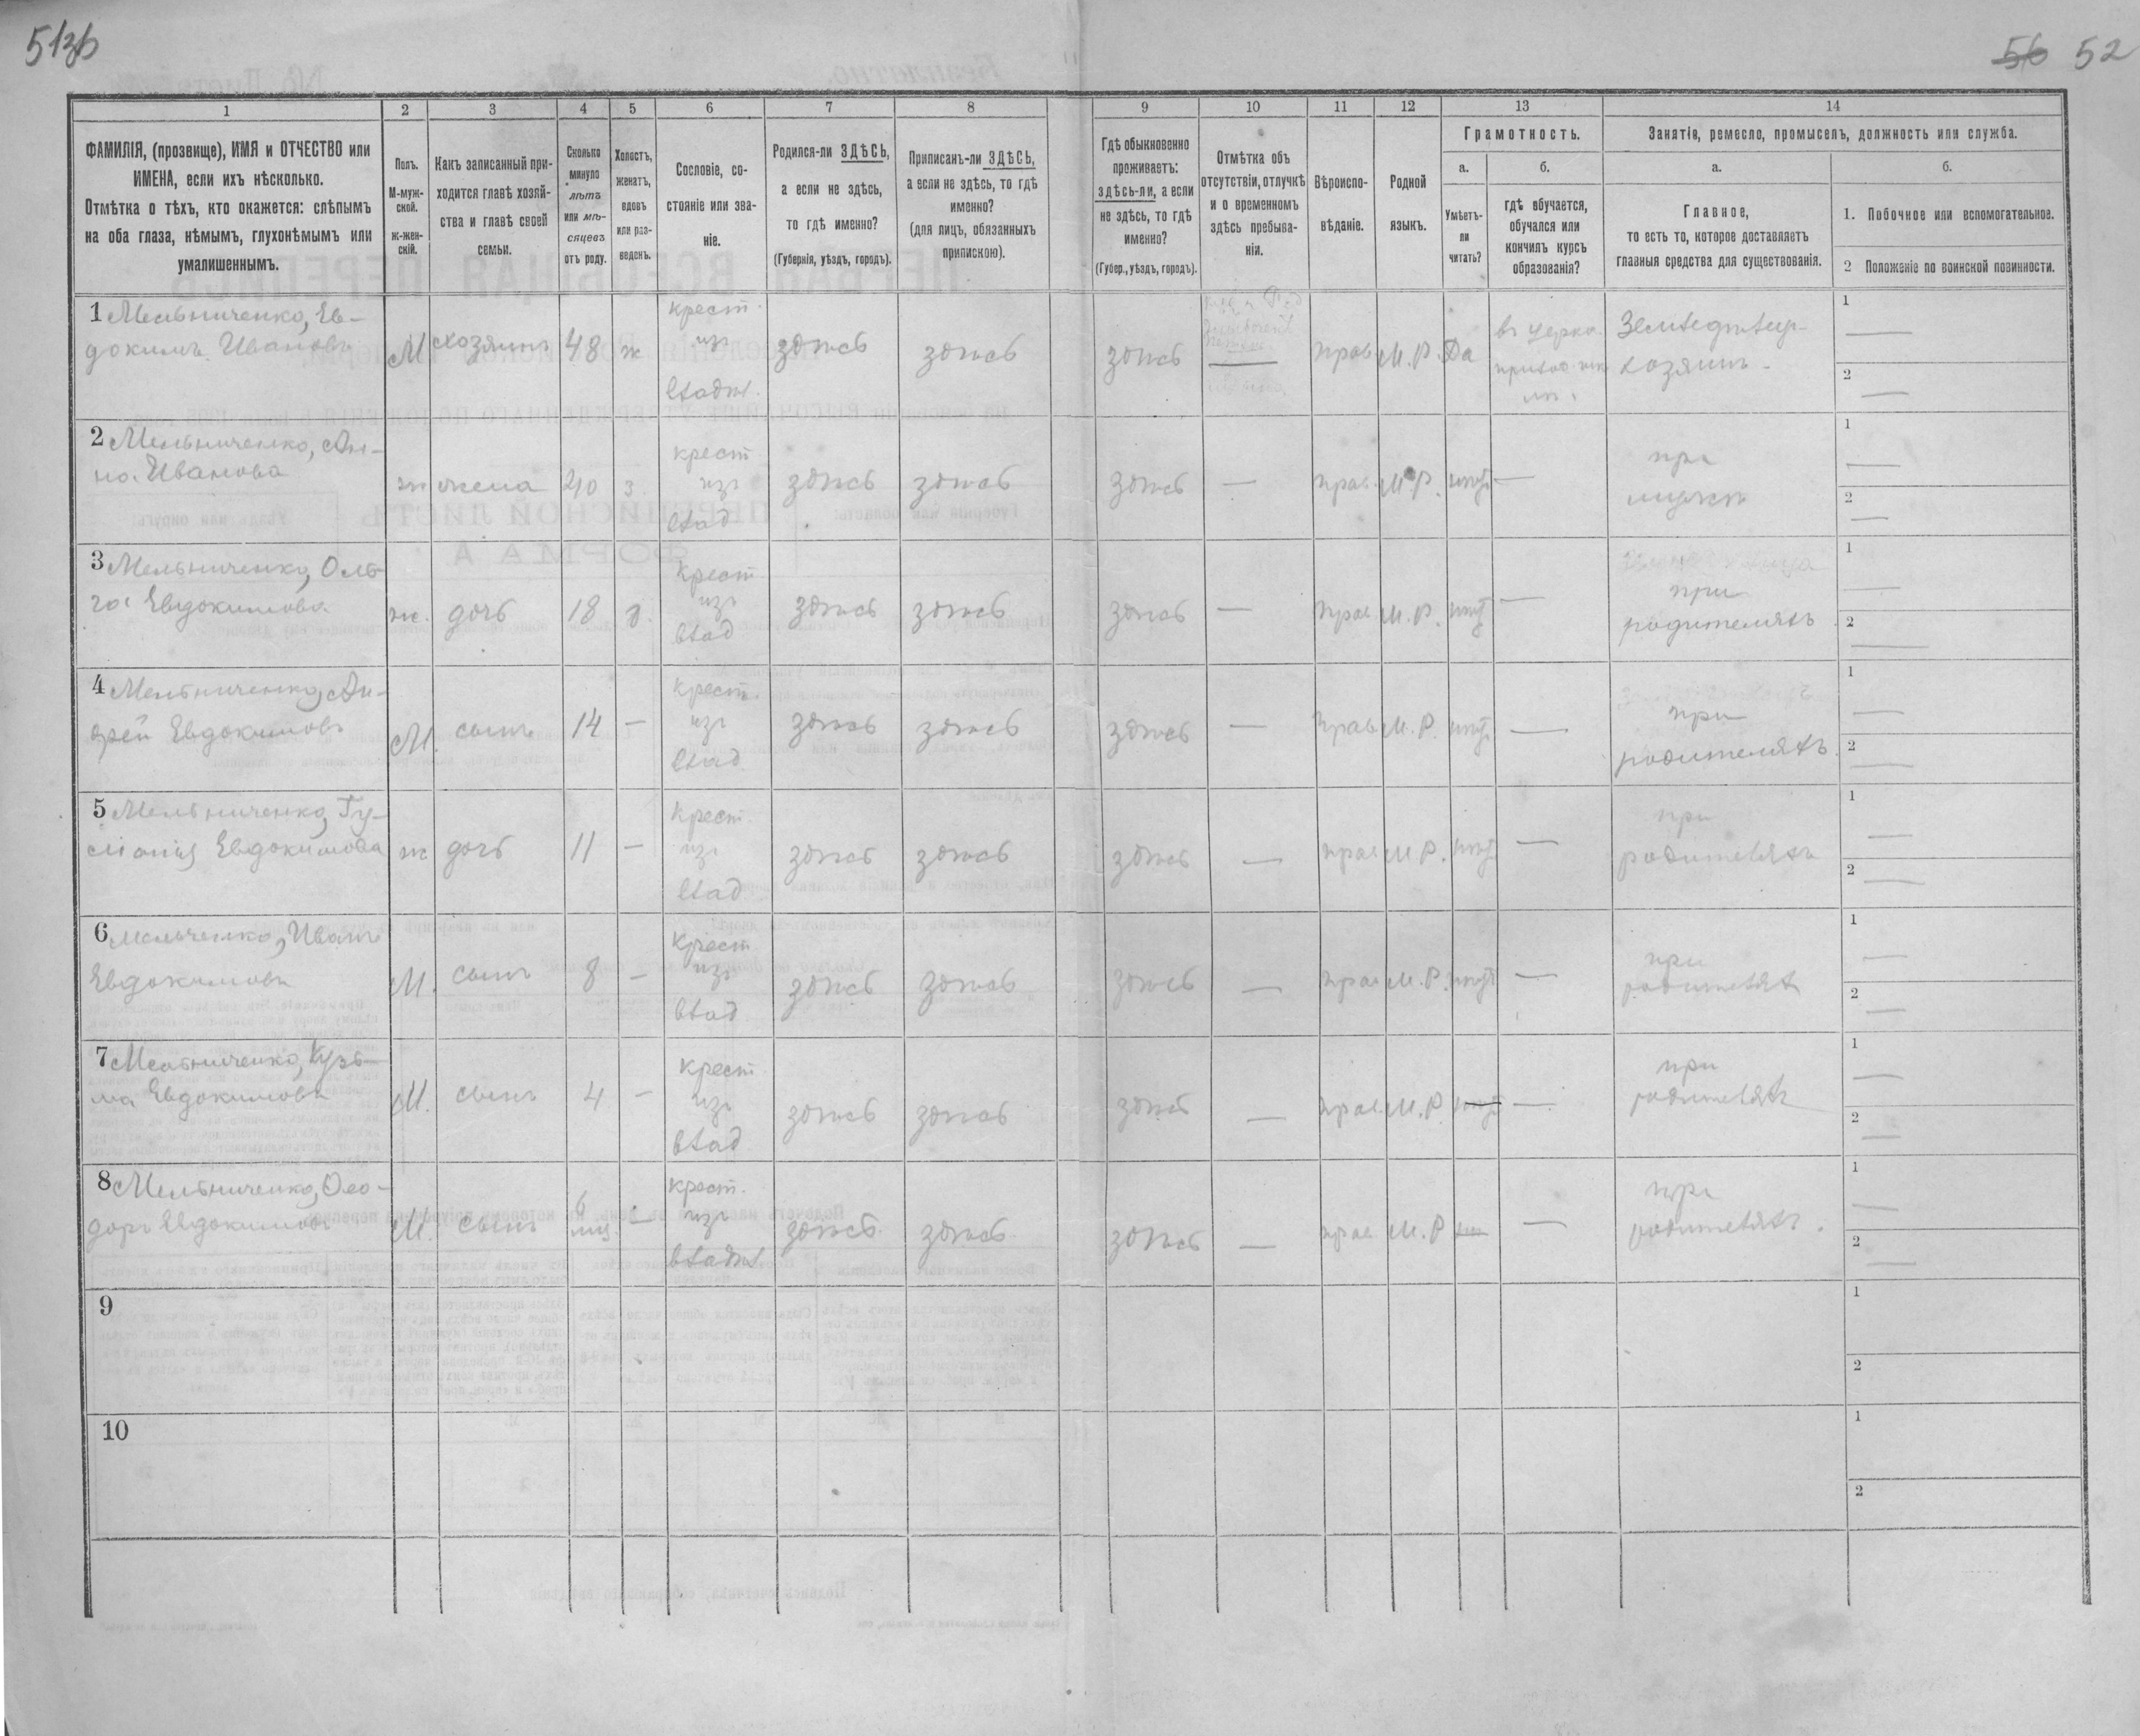 51зв
56 52
1
2
3
4
5
6
7
8
9
10
11
12
13
14
ФАМИЛІЯ, (прозвище), ИМЯ и ОТЧЕСТВО или
ИМЕНА, если ихъ нѣсколько.
Отмѣтка о тѣхъ, кто окажется: слѣпымъ
на оба глаза, нѣмымъ, глухонѣмымъ или
умалишеннымъ.
Полъ.
М-муж-
ской.
ж-жен-
скій.
Какъ записанный при-
ходится главѣ хозяй-
ства и главѣ своей
семьи.
Сколько
минуло
лѣтъ
или мѣ-
сяцевъ
отъ роду.
Холостъ,
женатъ,
вдовъ
или раз-
веденъ.
Сословіе, со-
стояніе или зва-
ніе.
Родился-ли ЗДѢСЬ,
а если не здѣсь,
то гдѣ именно?
(Губернія, уѣздъ, городъ).
Приписанъ-ли ЗДѢСЬ,
а если не здѣсь, то гдѣ
именно?
(для лицъ, обязанныхъ
припискою).
Гдѣ обыкновенно
проживаетъ:
здѣсь-ли, а если
не здѣсь, то гдѣ
именно?
(Губер., уѣздъ, городъ).
Отмѣтка объ
отсутствіи, отлучкѣ
и о временномъ
здѣсь пребыва-
ніи.
Вѣроиспо-
вѣданіе.
Родной
языкъ.
Грамотность.
а.
Умѣетъ-
ли
читать?
б.
гдѣ обучается,
обучался или
кончилъ курсъ
образованія?
Занятіе, ремесло, промыселъ, должность или служба.
а.
Главное,
то есть то, которое доставляетъ
главныя средства для существованія.
б.
1. Побочное или вспомогательное.
2 Положеніе по воинской повинности.
1 Мельниченко, Ев-
докимъ Ивановъ
М хозяинъ 48 ж
крест.
изъ
владѣл.
здѣсь здѣсь здѣсь — прав М.Р. Да
въ церко.
приход. шк
Земледѣлец-
хозяинъ
1 —
2 —
2 Мельниченко, Ан-
на Иванова
ж жена 40 з.
крест
изъ
влад
здѣсь здѣсь здѣсь — прав. М.Р. нѣтъ —
при
мужѣ
1 —
2 —
3 Мельниченко, Оль-
га Евдокимова
ж. дочь 18 д.
крест
изъ
влад
здѣсь здѣсь здѣсь — прав М.Р. нѣтъ —
при
родителяхъ
1 —
2 —
4 Мельниченко, Ан-
дрей Евдокимовъ
М. сынъ 14 —
крест.
изъ
влад
здѣсь здѣсь здѣсь — прав М.Р. нѣтъ —
при
родителяхъ.
1 —
2 —
5 Мельниченко,
Евдокимова
ж дочь 11 —
крест.
изъ
влад
здѣсь здѣсь здѣсь — прав М.Р. нѣтъ —
при
родителяхъ
1 —
2 —
6 Мельченко, Иванъ
Евдокимовъ
М. сынъ 8 —
крест
изъ
влад
здѣсь здѣсь здѣсь — прав М.Р. нѣтъ —
при
родителях
1 —
2 —
7 Мельниченко, Кузь-
ма Евдокимовъ
М. сынъ 4 —
крест
изъ
влад
здѣсь здѣсь здѣсь — прав. М.Р. нѣтъ —
при
родителяхъ
1 —
2 —
8 Мельниченко, Ѳео-
доръ Евдокимовъ
М. сынъ 6
мѣс. —
крест.
изъ
владѣл
здѣсь здѣсь здѣсь — прав М.Р —
при
родителяхъ.
1 —
2 —
9
1
2
10
1
2